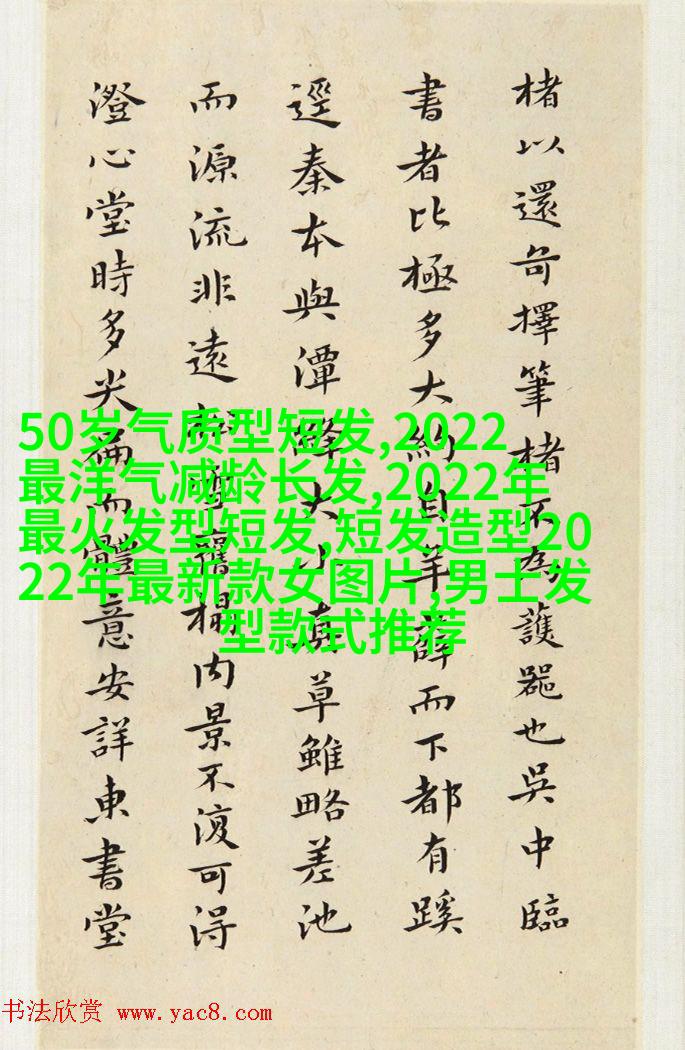 楮以還擇筆楮不為護器也吳中臨
書者比極多大約自羊薛而下都有蹊
逕秦本與潭絳大小真草雖略差池
而源流非遠舊榻內景不復可得
澄心堂時多尖而體意安詳東書堂
50岁气质型短发,2022
最洋气减龄长发,2022年
最火发型短发,短发造型20
22年最新款女图片,男士发
型款式推荐
书法欣赏 www.yac8.com